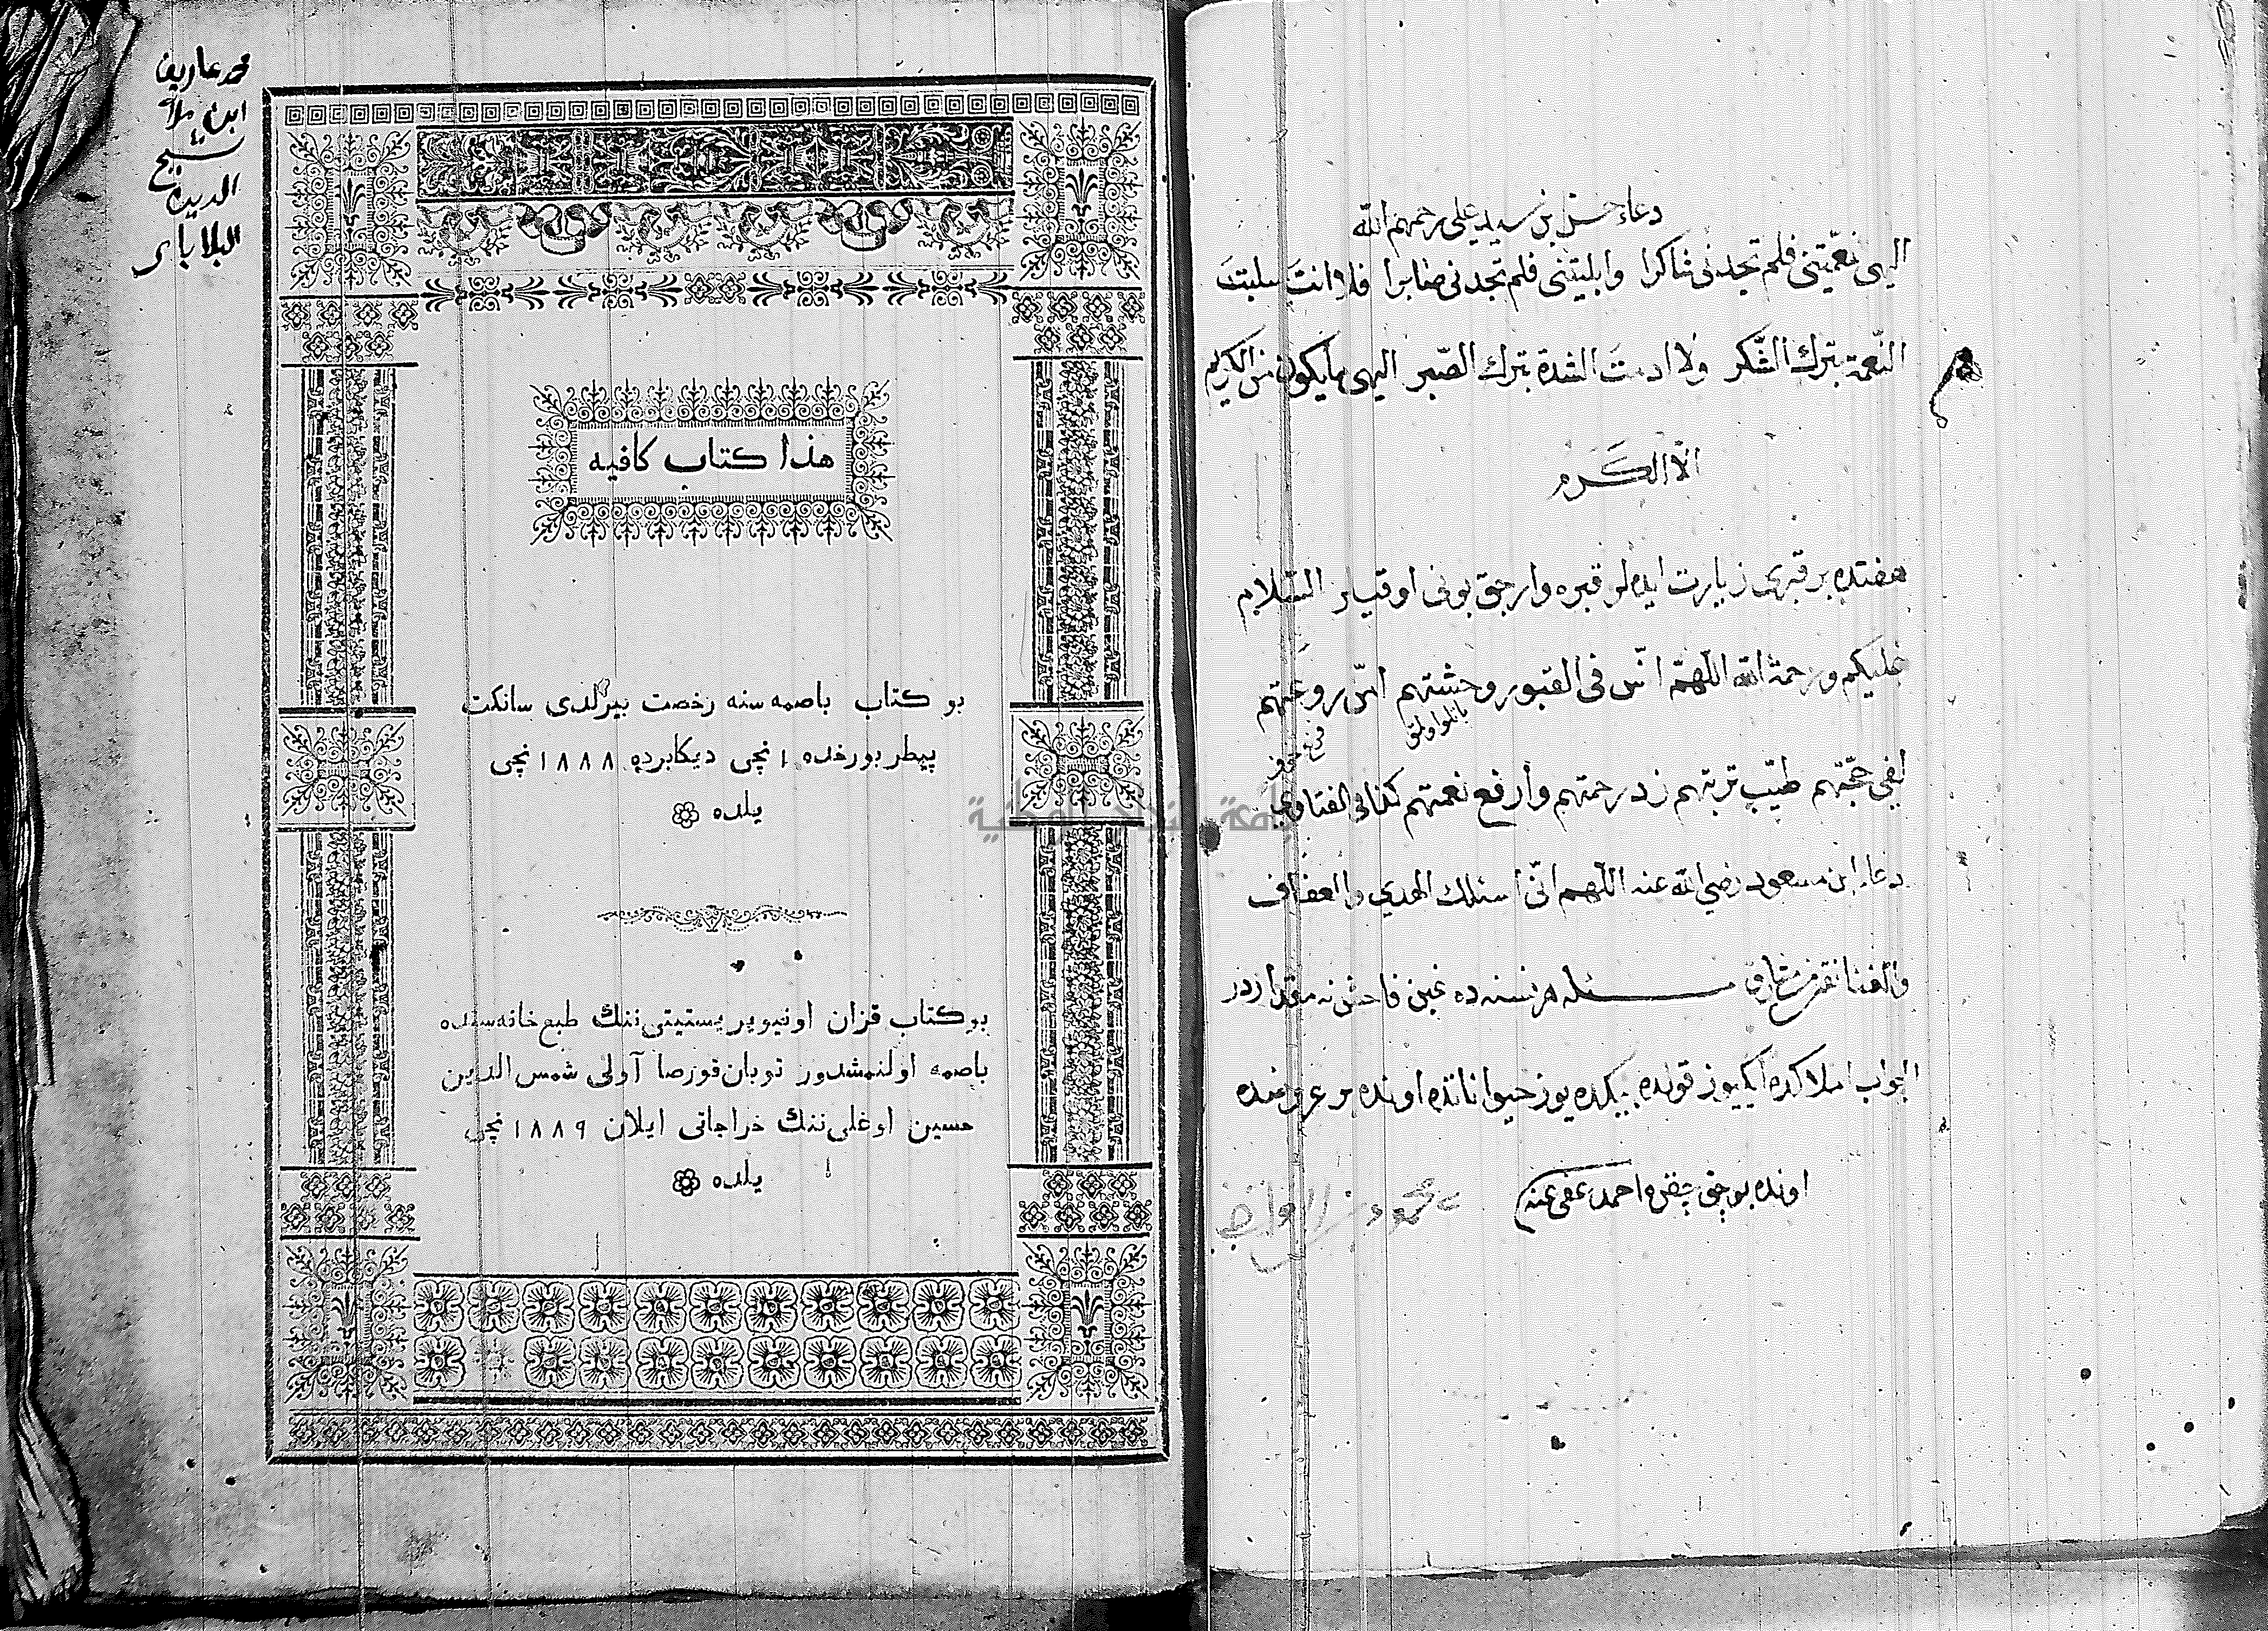 دعاء حسن بن سيد علي رحمهم الله
الهى نعّمتنى فلم تجدنى شاكرا وابليتنى فلم تجدنى صابرا فلا انتَ سلبتَ
النّعمة بترك الشّكر ولا ادمتَ الشدة بترك الصّبر الهى ما يكون من الكريم
الّا الكَرم
هفتده بر قبرى زيارت ايده لر قبره وارجق بونى اوقيلر السّلام
عليكم ورحمة الله اللّهمّ انّس فى القبور وحشتهم امّن روعتهم
لفي حجّتهم طيّب تربتهم زد رحمتهم وارفع نعمتهم كذا فى الفتاوى
دعاء ابن مسعود رضي الله عنه اللّهم انّى اسئلك الهدي والعفاف
والغنا نقل من مشارق مسئله هر نسنه ده غبن فاحش نه مقداردر
الجواب املاكده ايكيوز قولده بيكده يوز حيواناتده اونده بر عروضده
اونده بوچق چقر احمد عفى عنه
محمد عارف
ابن ملا
الدين
هذا كتاب كافيه
بو كتاب باصمه سنه رخصت بيرلدى سانكت
پيطربورغده ١ نچى ديكابرده ١٨٨٨ نچى
يلده
بو كتاب قزان اونيويرسيتيتى ننك طبع خانه سنده
باصمه اولنمشدور توبان قورصا آولى شمس الدين
حسين اوغلى ننك خراجاتى ايلان ١٨٨٩ نچى
يلده
جامعة النجاح الوطنية